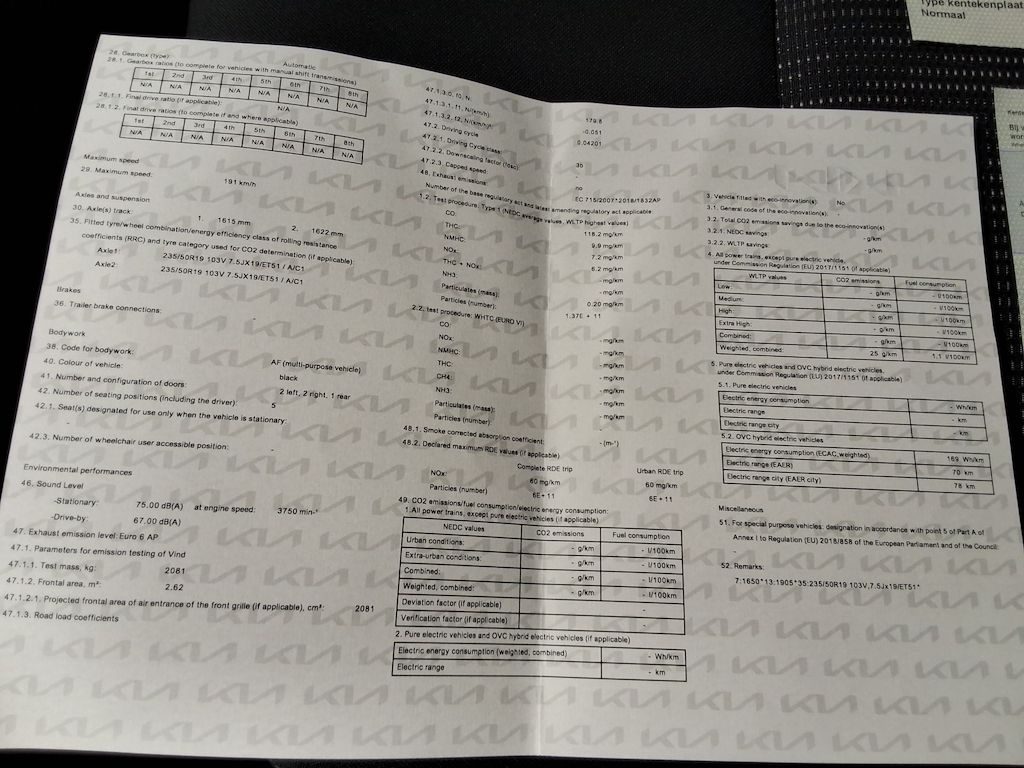 28. Gearbox (type): Automatic
28.1. Gearbox ratios (to complete for vehicles with manual shift transmissions)
1st 2nd 3rd 4th 5th 6th 7th 8th
N/A N/A N/A N/A N/A N/A N/A N/A
28.1.1. Final drive ratio (if applicable): N/A
28.1.2. Final drive ratios (to complete if and where applicable)
1st 2nd 3rd 4th 5th 6th 7th 8th
N/A N/A N/A N/A N/A N/A N/A N/A
Maximum speed
29. Maximum speed: 191 km/h
Axles and suspension
30. Axle(s) track: 1. 1615 mm 2. 1622 mm
35. Fitted tyre/wheel combination/energy efficiency class of rolling resistance
coefficients (RRC) and tyre category used for CO2 determination (if applicable):
Axle1: 235/50R19 103V 7.5JX19/ET51 / A/C1
Axle2: 235/50R19 103V 7.5JX19/ET51 / A/C1
Brakes
36. Trailer brake connections: -
Bodywork
38. Code for bodywork: AF (multi-purpose vehicle)
40. Colour of vehicle: black
41. Number and configuration of doors: 2 left, 2 right, 1 rear
42. Number of seating positions (including the driver): 5
42.1. Seat(s) designated for use only when the vehicle is stationary:
-
42.3. Number of wheelchair user accessible position: -
Environmental performances
46. Sound Level
-Stationary: 75.00 dB(A) at engine speed: 3750 min-¹
-Drive-by: 67.00 dB(A)
47. Exhaust emission level: Euro 6 AP
47.1. Parameters for emission testing of Vind
47.1.1. Test mass, kg: 2081
47.1.2. Frontal area, m²: 2.62
47.1.2.1. Projected frontal area of air entrance of the front grille (if applicable), cm²: 2081
47.1.3. Road load coefficients
47.1.3.0. f0, N: 179.8
47.1.3.1. f1, N/(km/h): -0.051
47.1.3.2. f2, N/(km/h)²: 0.04201
47.2. Driving cycle
47.2.1. Driving Cycle class: 3b
47.2.2. Downscaling factor (fdsc): -
47.2.3. Capped speed: no
48. Exhaust emissions: EC 715/2007*2018/1832AP
Number of the base regulatory act and latest amending regulatory act applicable
1.2. Test procedure: Type 1 (NEDC average values, WLTP highest values)
CO: 118.2 mg/km
THC: 9.9 mg/km
NMHC: 7.2 mg/km
NOx: 6.2 mg/km
THC + NOx: - mg/km
NH3: - mg/km
Particulates (mass): 0.20 mg/km
Particles (number): 1.37E + 11
2.2. test procedure: WHTC (EURO VI)
CO: - mg/km
NOx: - mg/km
NMHC: - mg/km
THC: - mg/km
CH4: - mg/km
NH3: - mg/km
Particulates (mass): - mg/km
Particles (number):
48.1. Smoke corrected absorption coefficient: - (m-¹)
48.2. Declared maximum RDE values (if applicable)
Complete RDE trip Urban RDE trip
NOx: 60 mg/km 60 mg/km
Particles (number) 6E+ 11 6E + 11
49. CO2 emissions/fuel consumption/electric energy consumption:
1.All power trains, except pure electric vehicles (if applicable)
NEDC values CO2 emissions Fuel consumption
Urban conditions: - g/km - l/100km
Extra-urban conditions: - g/km - l/100km
Combined: - g/km - l/100km
Weighted, combined: - g/km - l/100km
Deviation factor (if applicable) -
Verification factor (if applicable) -
2. Pure electric vehicles and OVC hybrid electric vehicles (if applicable)
Electric energy consumption (weighted, combined) - Wh/km
Electric range - km
3. Vehicle fitted with eco-innovation(s) No
3.1. General code of the eco-innovation(s): -
3.2. Total CO2 emissions savings due to the eco-innovation(s)
3.2.1. NEDC savings: - g/km
3.2.2. WLTP savings: - g/km
4. All power trains, except pure electric vehicle,
under Commission Regulation (EU) 2017/1151 (if applicable)
WLTP values CO2 emissions Fuel consumption
Low: - g/km - l/100km
Medium: - g/km - l/100km
High: - g/km - l/100km
Extra High: - g/km - l/100km
Combined: - g/km - l/100km
Weighted, combined: 25 g/km 1.1 l/100km
5. Pure electric vehicles and OVC hybrid electric vehicles,
under Commission Regulation (EU) 2017/1151 (if applicable)
5.1. Pure electric vehicles
Electric energy consumption - Wh/km
Electric range - km
Electric range city - km
5.2. OVC hybrid electric vehicles
Electric energy consumption (ECAC,weighted) 169 Wh/km
Electric range (EAER) 70 km
Electric range city (EAER city) 78 km
Miscellaneous
51. For special purpose vehicles: designation in accordance with point 5 of Part A of
Annex I to Regulation (EU) 2018/858 of the European Parliament and of the Council:
-
52. Remarks:
7:1650*13:1905*35:235/50R19 103V,7.5Jx19/ET51*
Type kentekenplaat
Normaal